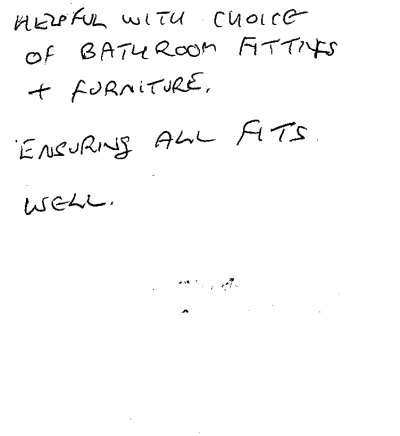 HELPFUL WITH CHOICE
OF BATHROOM FITTINGS
+ FURNITURE.
ENSURING ALL FITS
WELL.